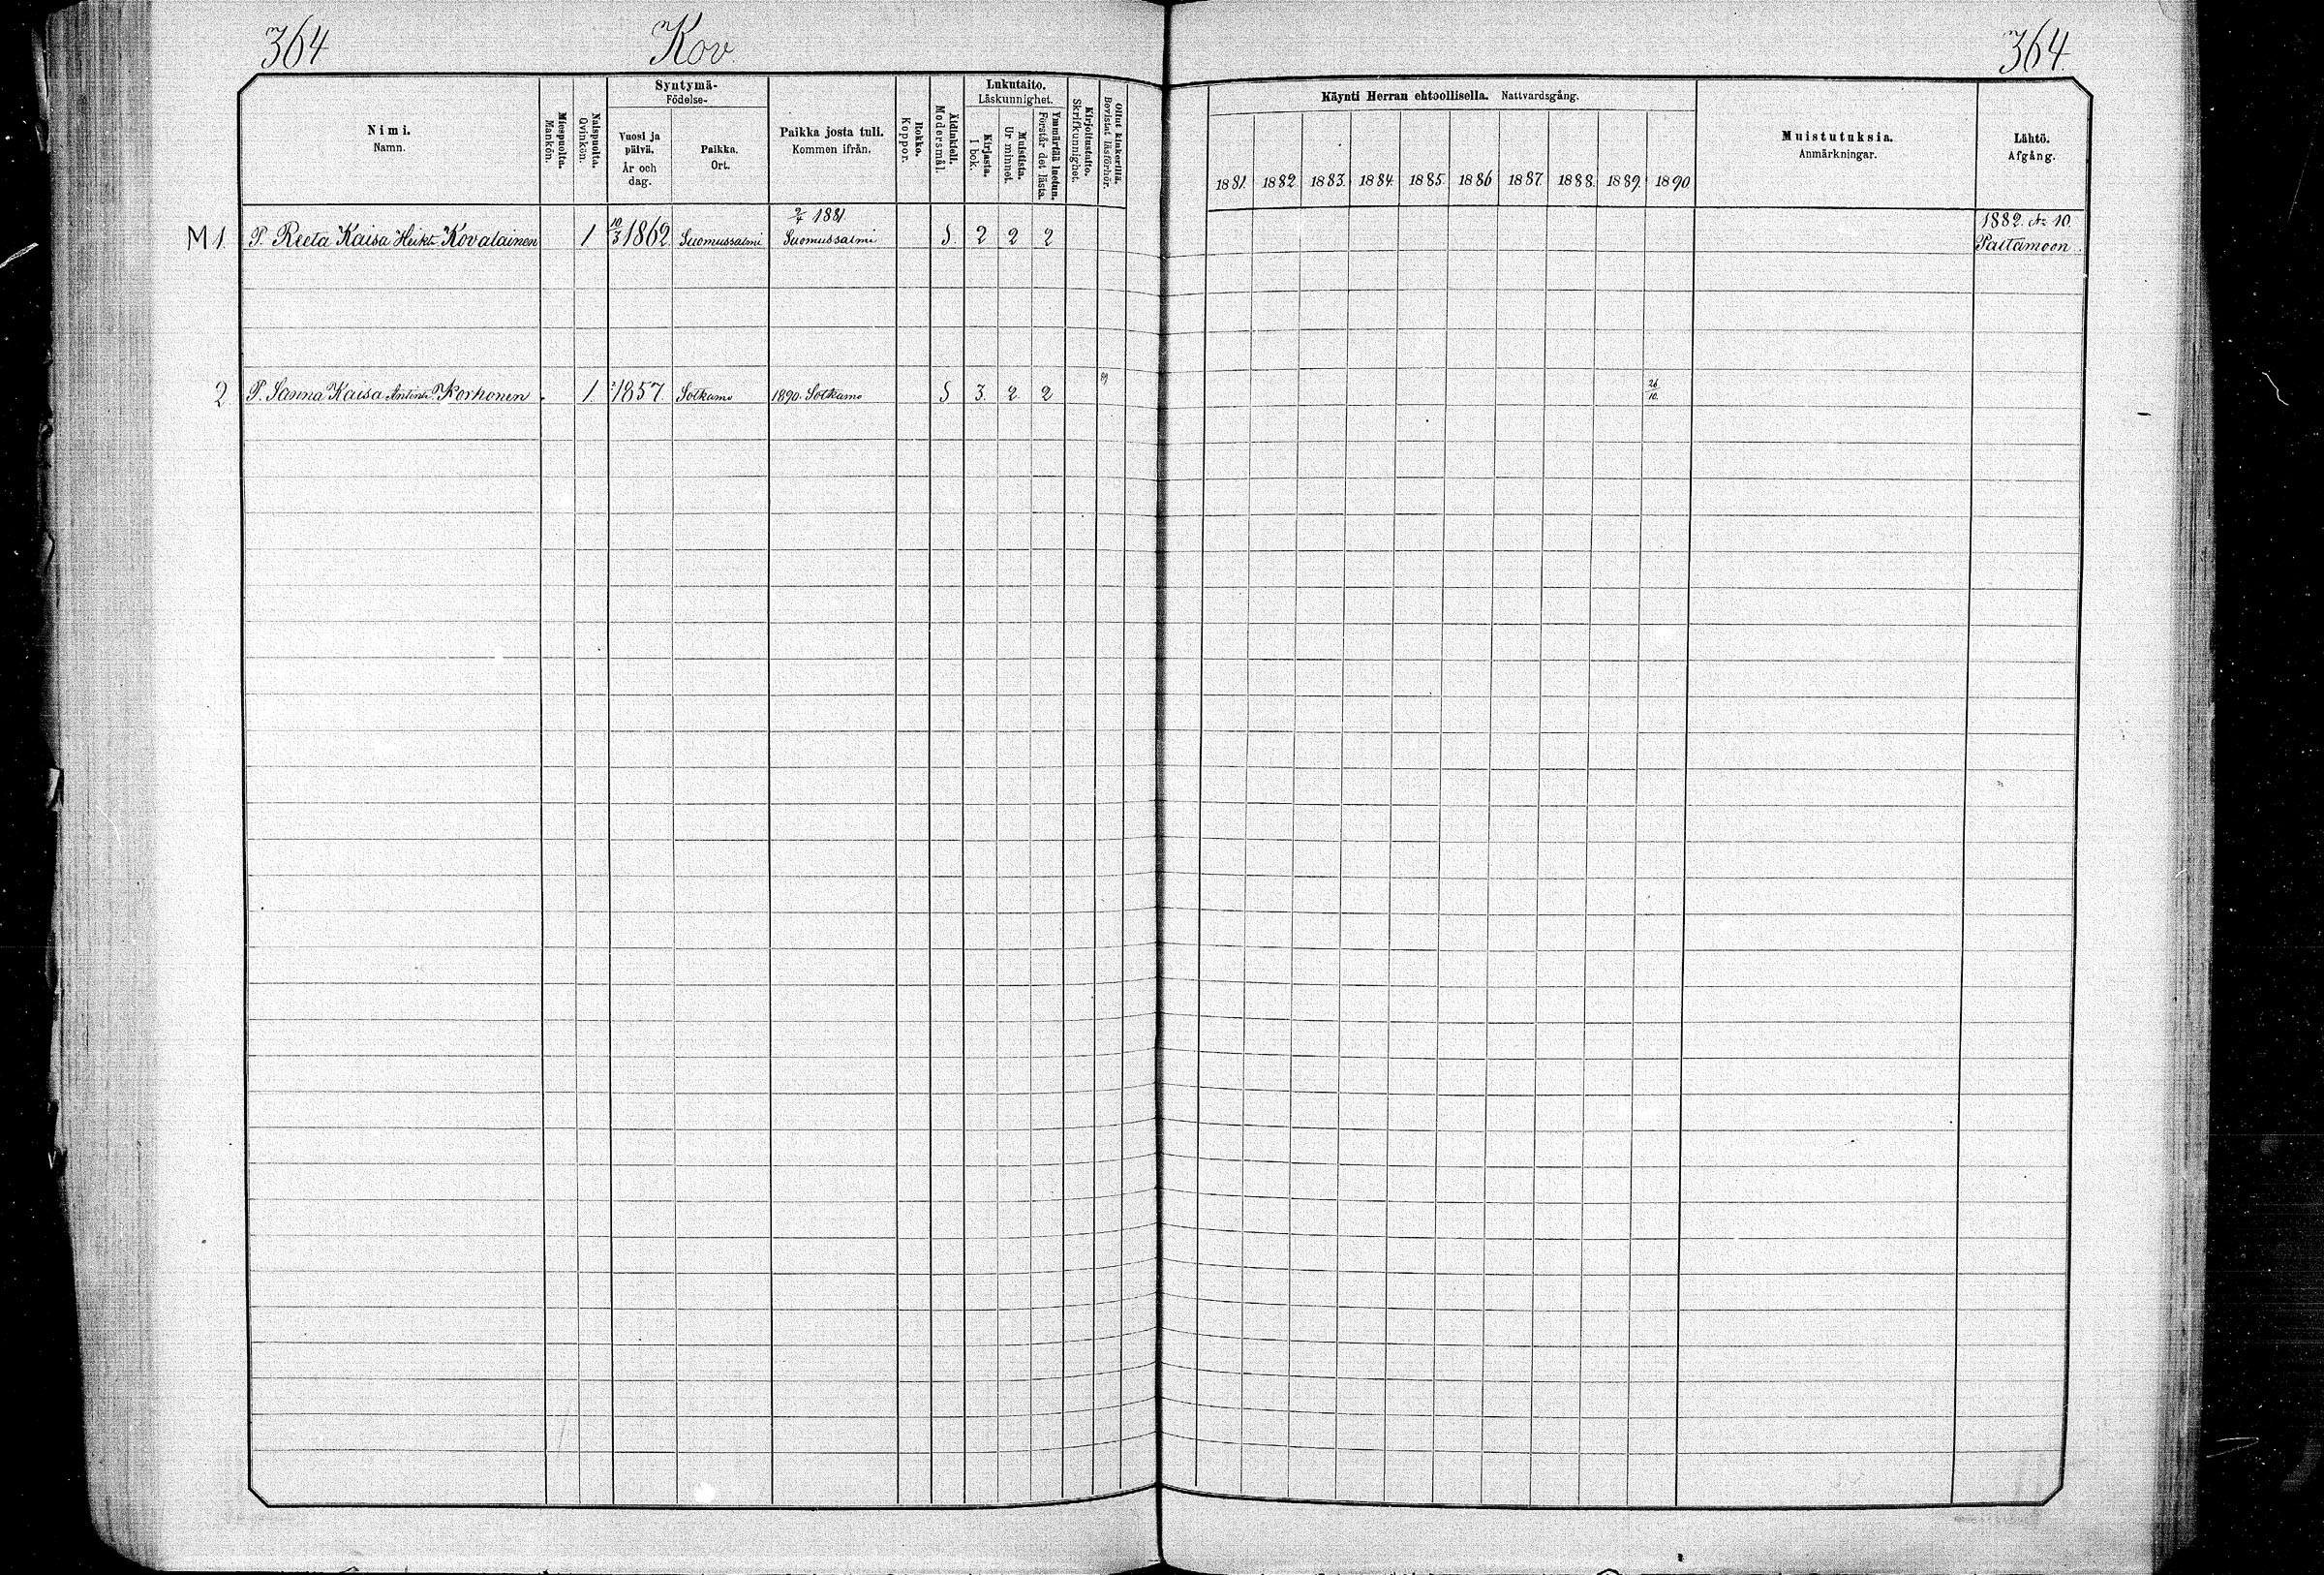 364 Kov. 364
Nimi.
Namn.
Miespuolta.
Mankön.
Naispuolta.
Qvinkön.
Syntymä-
Födelse-
Vuosi ja
päivä.
År och
dag.
Paikka.
Ort.
Paikka josta tuli.
Kommen ifrån.
Rokko.
Koppor.
Äidinkieli.
Modersmål.
Lukutaito.
Läskunnighet.
Kirjasta.
I bok.
Muistista.
Ur minnet.
Ymmärtää luetun.
Förstår det lästa.
Kirjoitustaito.
Skrifkunnighet.
Ollut kinkerillä.
Bevistat läsförhör.
Käynti Herran ehtoollisella. Nattvardsgång.
1881. 1882. 1883. 1884. 1885. 1886 1887. 1888. 1889. 1890
Muistutuksia.
Anmärkningar.
Lähtö.
Afgång.
2/4 1881 1882. № 10.
M 1. P. Reeta Kaisa Heikt. Kovalainen 1 10/3 1862 Suomussalmi Suomussalmi S. 2 2 2 Paltamoon.
2. P. Sanna Kaisa Antint. Korhonen 1. 1857. Sotkamo 1890. Sotkamo S 3. 2 2 89 26/10.